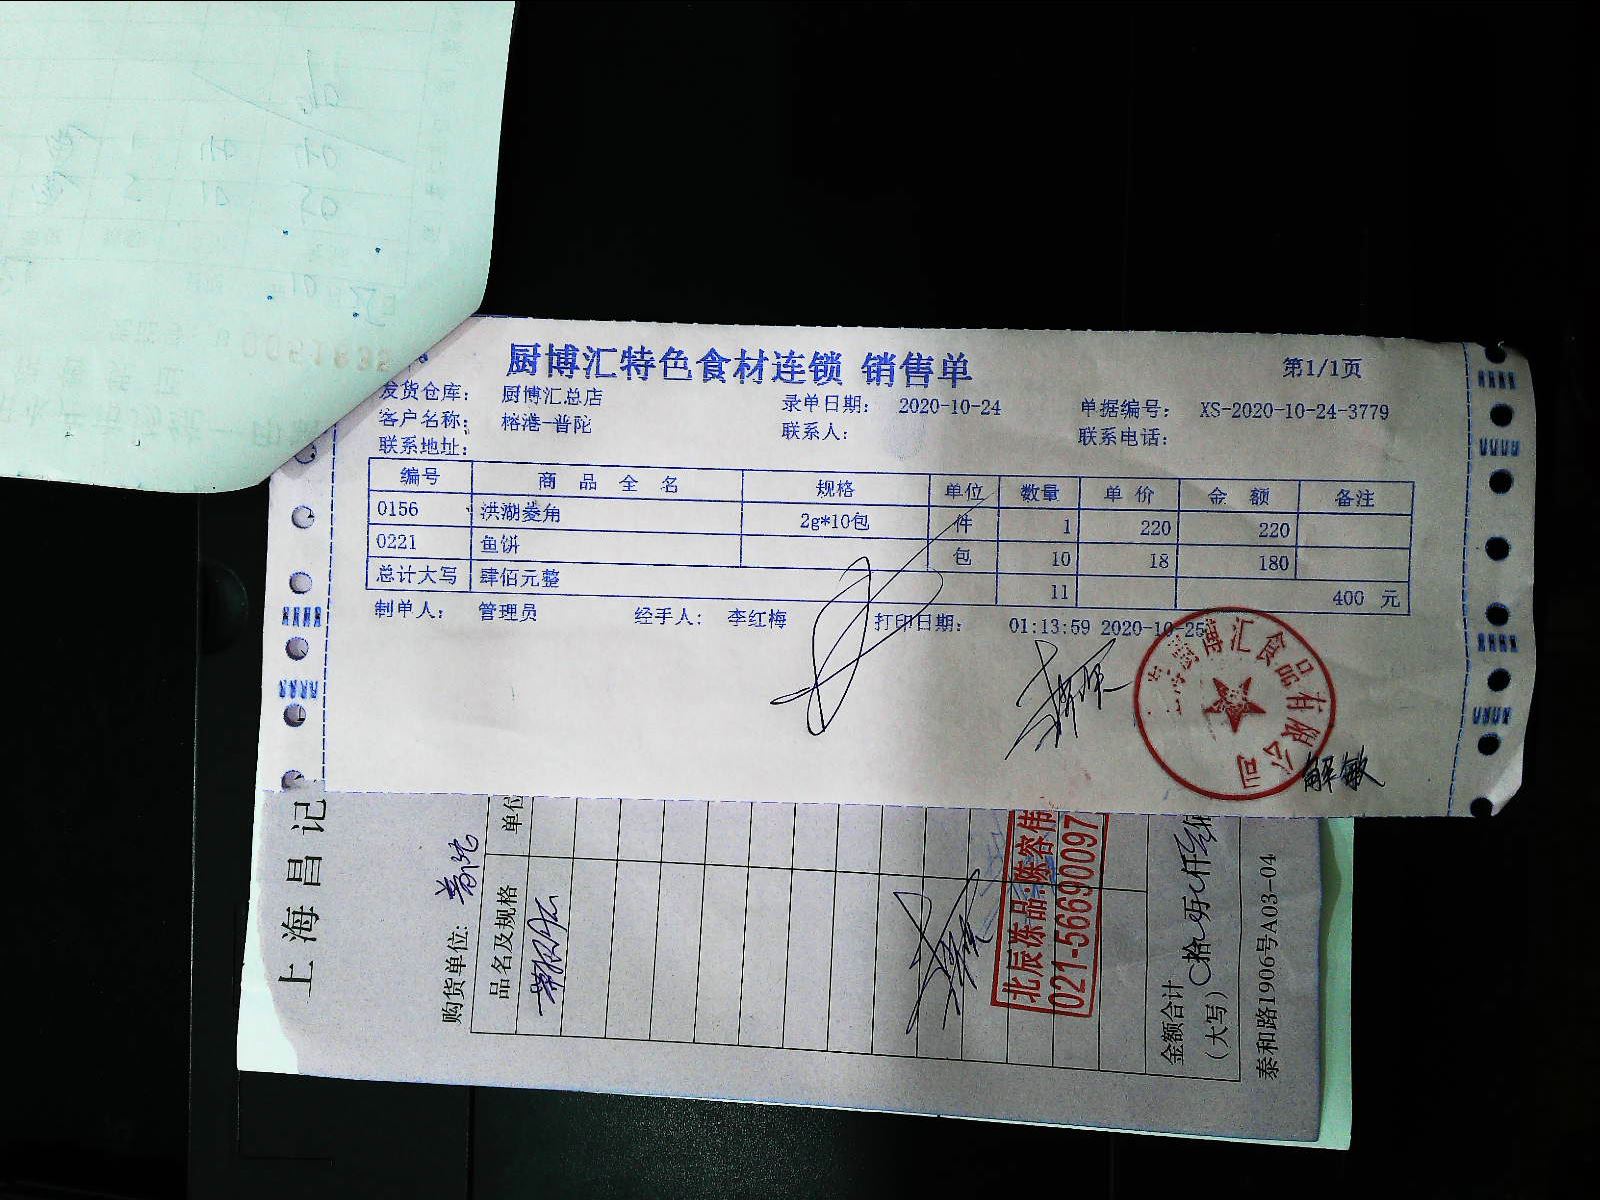 厨博汇特色食材连锁 销售单
第1/1页
发货仓库： 厨博汇总店 录单日期： 2020-10-24 单据编号： XS-2020-10-24-3779
客户名称： 榕港-普陀 联系人： 联系电话：
联系地址：
编号 商品全名 规格 单位 数量 单价 金额 备注
0156 洪湖菱角 2g*10包 件 1 220 220
0221 鱼饼 包 10 18 180
总计大写 肆佰元整 11 400 元
制单人： 管理员 经手人： 李红梅 打印日期： 01:13:59 2020-10-25
上海厨博汇食品有限公司
解敏
上海昌记
购货单位: 普陀
品名及规格 单位
北辰冻品:陈容伟
021-56690097
金额合计
（大写） 拾 万 仟
泰和路1906号A03-04